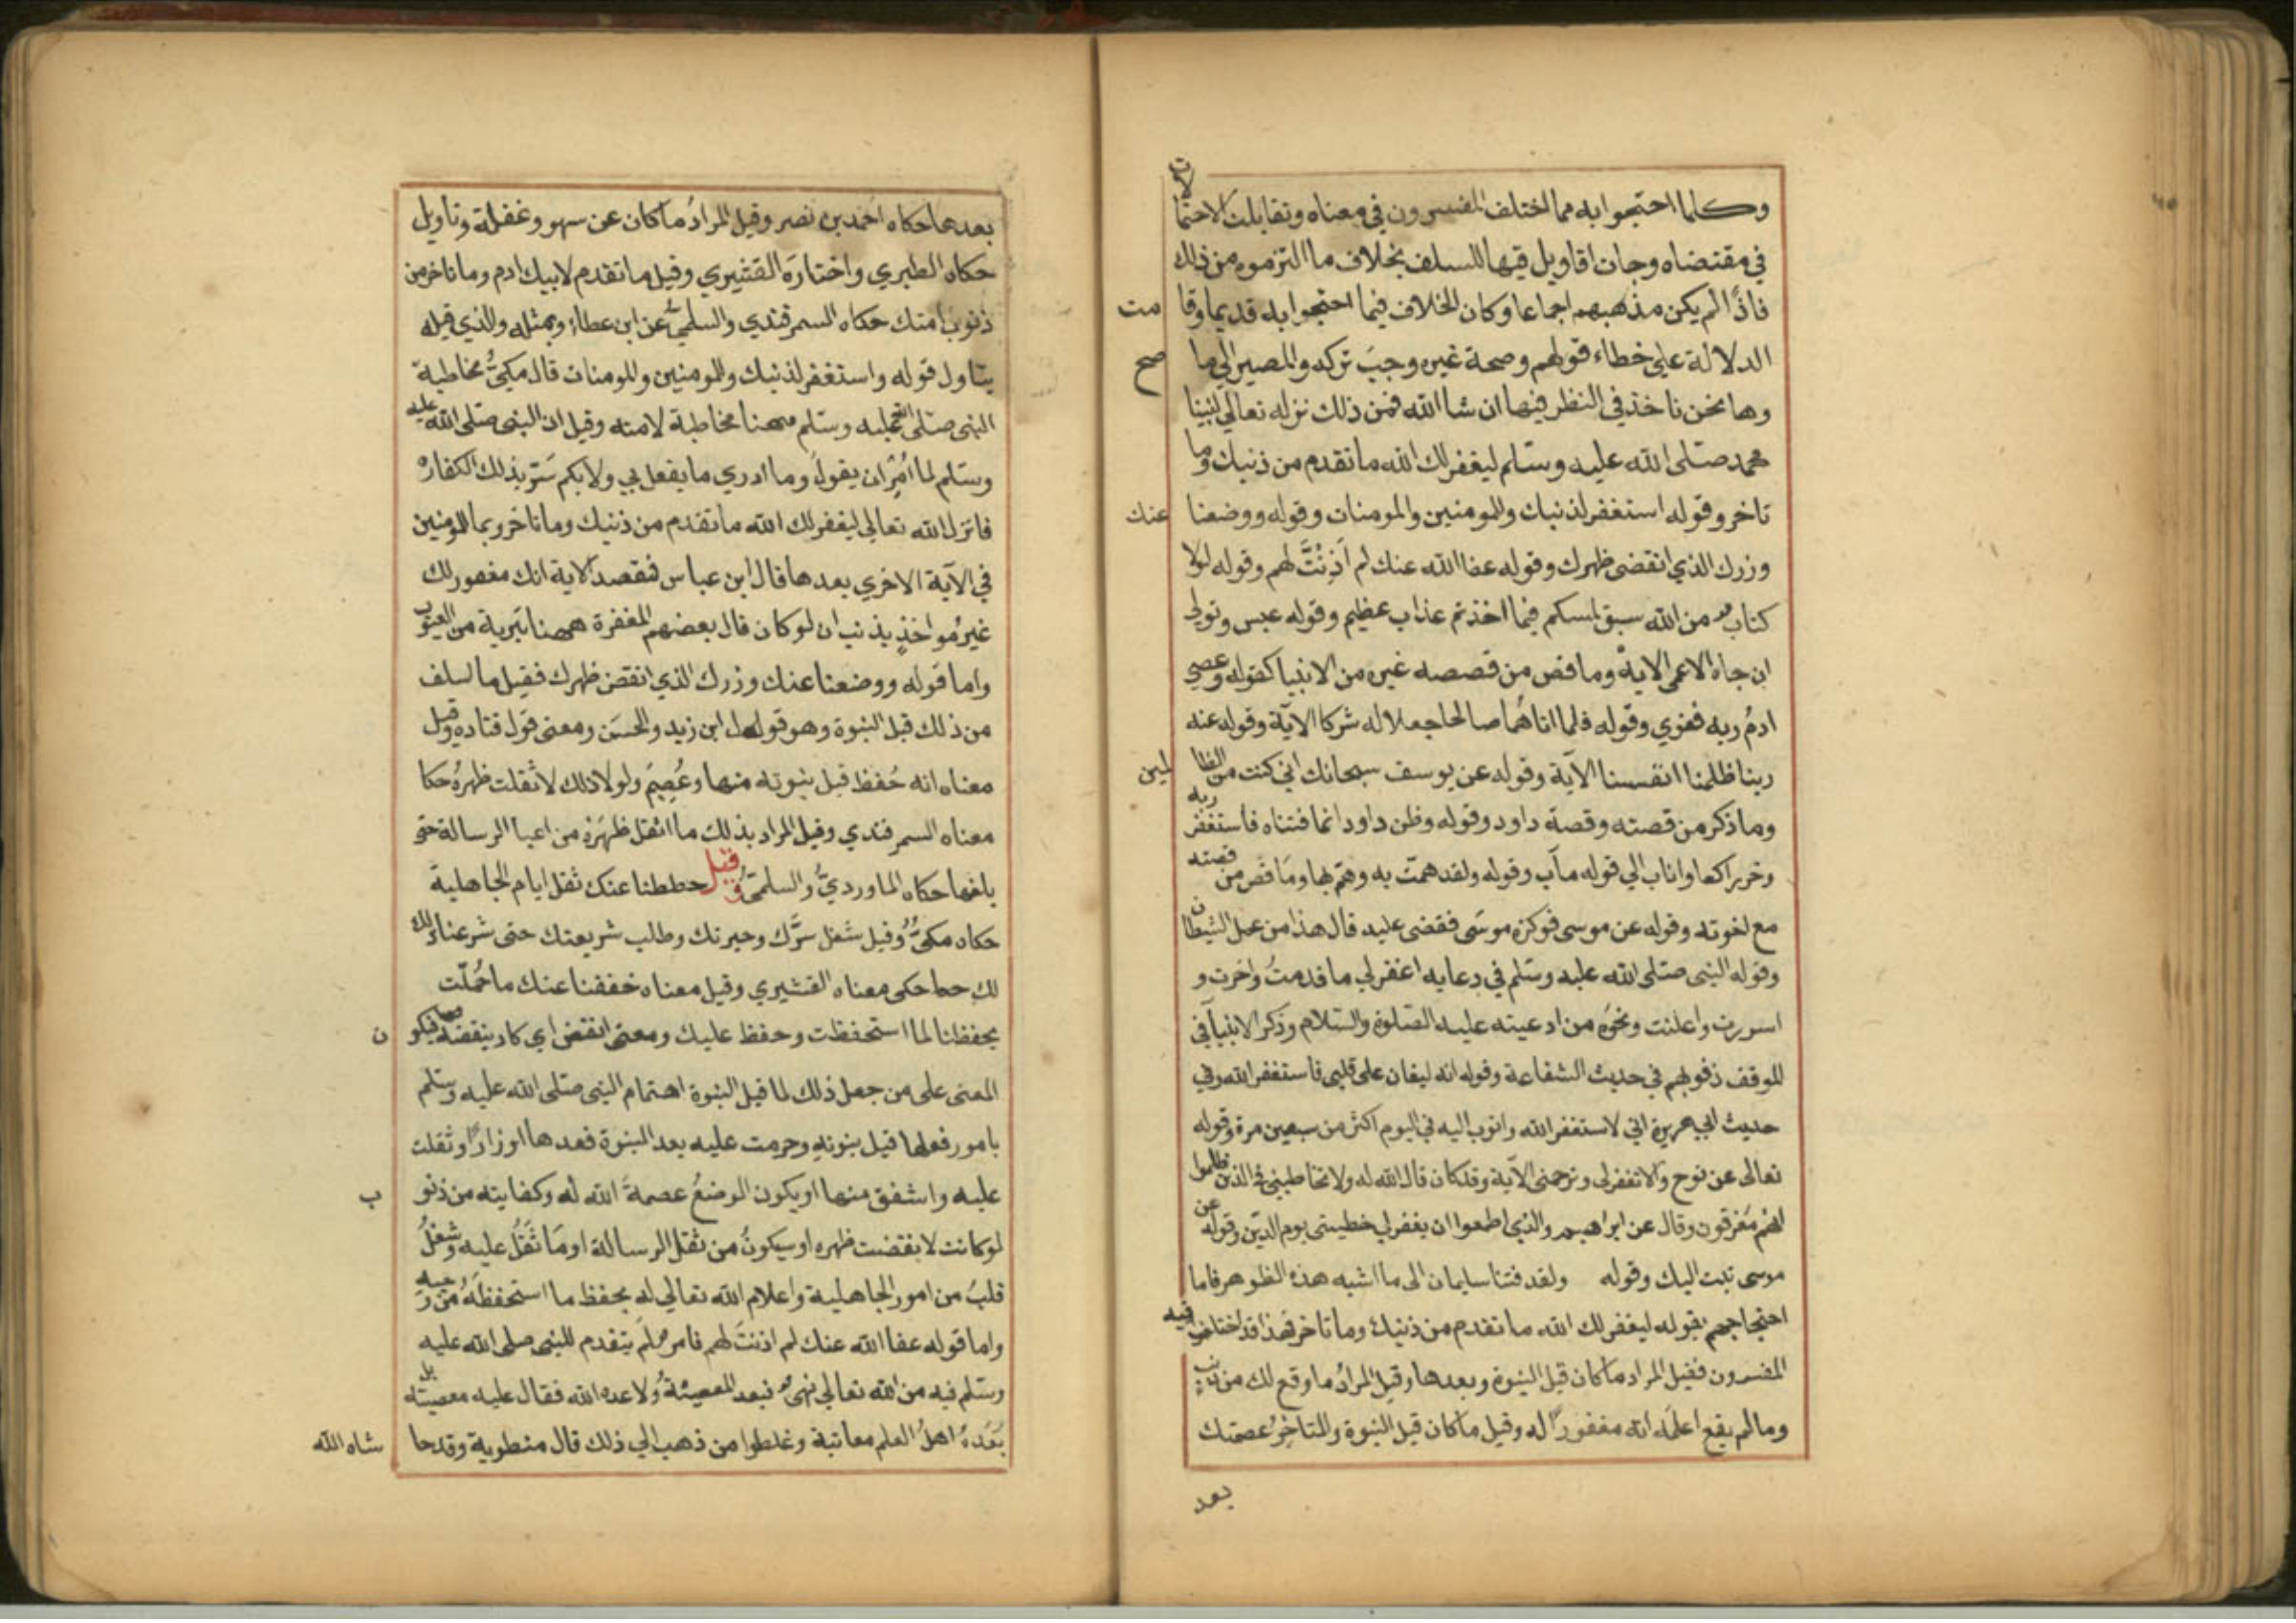 وكلما احتجوا به مما اختلف المفسرون في معناه وتقابلت الاحتما لات
في مقتضاه وجات اقاويل فيها للسلف بخلاف ما التزموه من ذلك
فاذا لم يكن مذهبهم اجماعا وكان الخلاف فيما احتجوا به قديما وقا مت
الدلالة على خطاء قولهم وصحة غيره وجب تركه والمصير الي ما صح
وها نحن ناخذ في النظر فيها ان شا الله فمن ذلك قوله تعالي لنبينا
محمد صلى الله عليه وسلم ليغفر لك الله ما تقدم من ذنبك وما
تاخر وقوله استغفر لذنبك وللمومنين والمومنات وقوله ووضعنا عنك
وزرك الذي انقض ظهرك وقوله عفا الله عنك لم اذنت لهم وقوله لولا
كتاب من الله سبق لمسكم فيما اخذتم عذاب عظيم وقوله عبس وتولي
ان جاه الاعمى الاية وما قص من قصصه غيره من الانبيا كقوله وعصي
ادم ربه فغوي وقوله فلما اتاهما صالحا جعلا له شركا الاية وقوله عنه
ربنا ظلمنا انفسنا الاية وقوله عن يوسف سبحانك اني كنت من الظا لمين
وما ذكر من قصته وقصة داود وقوله وظن داود انما فتناه فاستغفر ربه
وخر راكعا واناب الي قوله مآب وقوله ولقد همت به وهم بها وما قص من قصته
مع اخوته وقوله عن موسى فوكزه موسى فقضى عليه قال هذا من عمل الشيطان
وقوله النبى صلى الله عليه وسلم في دعايه اغفر لي ما قدمت واخرت و
اسررت واعلنت ونحوه من ادعيته عليه الصلوة والسلام وذكر الانبيا في
الموقف ذنوبهم في حديث الشفاعة وقوله انه ليغان على قلبى فاستغفر الله وفي
حديث ابي هريرة اني لاستغفر الله واتوب اليه في اليوم اكثر من سبعين مرة وقوله
تعالى عن نوح والا تغفر لى وترحمنى الاية وقد كان قال الله له ولا تخاطبني في الذين ظلموا
انهم مغرقون وقال عن ابراهيم والذي اطمعوا ان يغفر لي خطيىتى يوم الدين وقوله عن
موسى تبت اليك وقوله ولقد فتنا سليمان الى ما اشبه هذه الظواهر فاما
احتجاجهم بقوله ليغفر لك الله ما تقدم من ذنبك وما تاخر فهذا قد اختلف فيه
المفسرون فقيل المراد ما كان قبل النبوة وبعدها وقيل المراد ما وقع لك من ذنب
وما لم يقع اعلمه انه مغفور له وقيل ما كان قبل النبوة والمتاخر عصمتك
بعد
بعدها حكاه احمد بن نصر وقيل المراد ما كان عن سهو وغفلة وتاويل
حكاه الطبري واختاره القشيري وقيل ما تقدم لابيك ادم وما تاخر من
ذنوب امتك حكاه السمرقندي والسلمي عن ابن عطاء وبمثله والذي قبله
يتاول قوله واستغفر لذنبك وللمومنين والمومنات قال مكي مخاطبة
النبى صلى الله عليه وسلم ههنا مخاطبة لامته وقيل ان النبى صلى الله عليه
وسلم لما امر ان يقول وما ادري ما يفعل بي ولا بكم سر بذلك الكفاره
فانزل الله تعالي ليغفر لك الله ما تقدم من ذنبك وما تاخر وبمال المومنين
في الآية الاخري بعدها قال ابن عباس فمقصد الاية انك مغفور لك
غير مواخذ بذنب ان لو كان قال بعضهم المغفرة ههنا تبرية من العيوب
واما قوله ووضعنا عنك وزرك الذي انقض ظهرك فقيل ما سلف
من ذلك قبل النبوة وهو قول ابن زيد والحسن ومعنى قول قتاده وقيل
معناه انه حفظ قبل نبوته منها وعصم ولولا ذلك لاثقلت ظهره حكا
معناه السمرقندي وقيل المراد بذلك ما اثقل ظهره من اعبا الرسالة حتى
بلغها حكاه الماوردي والسلمي وقيل حططنا عنك ثقل ايام الجاهلية
حكاه مكي وقيل شغل سرك وحيرتك وطلب شريعتك حتى شرعنا ذلك
لك حكى معناه القشيري وقيل معناه خففنا عنك ما حملت
بحفظنا لما استحفظت وحفظ عليك ومعنى انقض اي كاد ينقضه فيكو ن
المعنى على من جعل ذلك لما قبل النبوة اهتمام النبى صلى الله عليه وسلم
بامور فعلها قبل نبوته وحرمت عليه بعد النبوة فعدها اوزارا وثقلت
عليه واشفق منها او يكون الوضع عصمة الله له وكفايته من ذنو ب
لو كانت لانقضت ظهره او سيكون من ثقل الرسالة او ما ثقل عليه وشغل
قلب من امور الجاهلية واعلام الله تعالي له بحفظ ما استحفظه من وحيه
واما قوله عفا الله عنك لم اذنت لهم فامر لم يتقدم للنبي صلى الله عليه
وسلم فيه من الله تعالي نهى فيعد المعصيته ولا عده الله فقال عليه معصيته بل
يعده اهل العلم معاتبة وغلطوا من ذهب الي ذلك قال منطوية وقد حا شاه الله